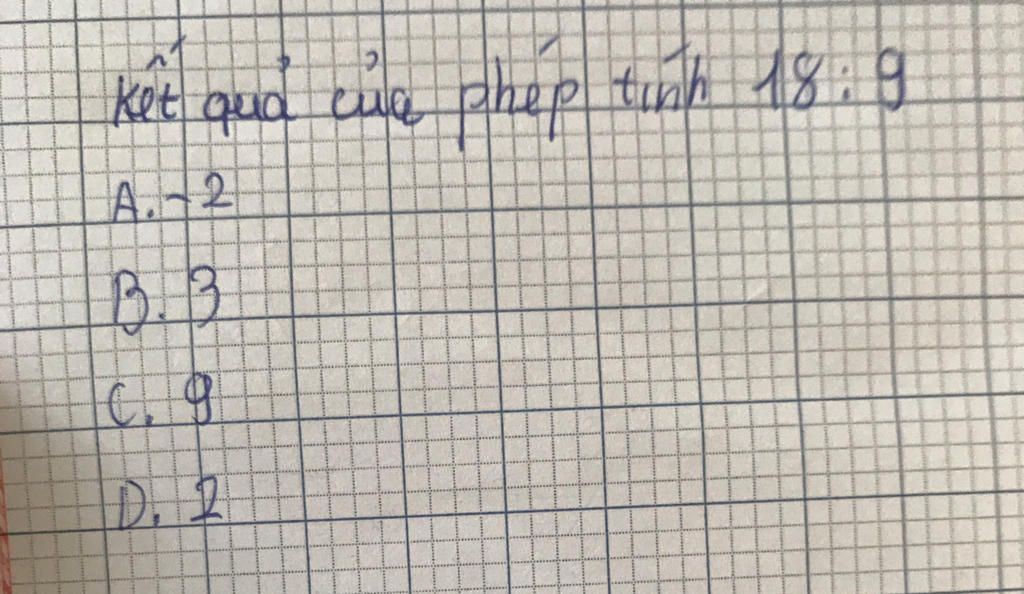 Kết quả của phép tính 18 : 9
A. -2
B. 3
C. 9
D. 2